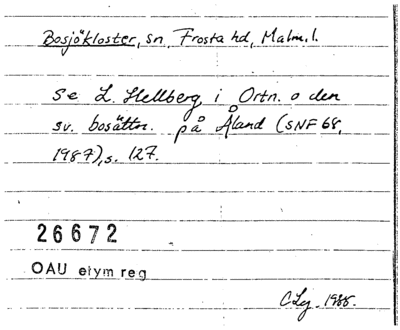 Bosjökloster, sn, Frosta hd, Malm. l.
Se L. Hellberg i Ortn. o den
sv. bosättn. på Åland (SNF 68,
1987), s. 127.
26672
OAU etym reg
CLg. 1988.